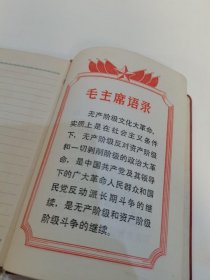 毛主席语录
无产阶级文化大革命，
实质上是在社会主义条件
下，无产阶级反对资产阶级
和一切剥削阶级的政治大革
命，是中国共产党及其领导
下的广大革命人民群众和国
民党反动派长期斗争的继
续，是无产阶级和资产阶级
阶级斗争的继续。